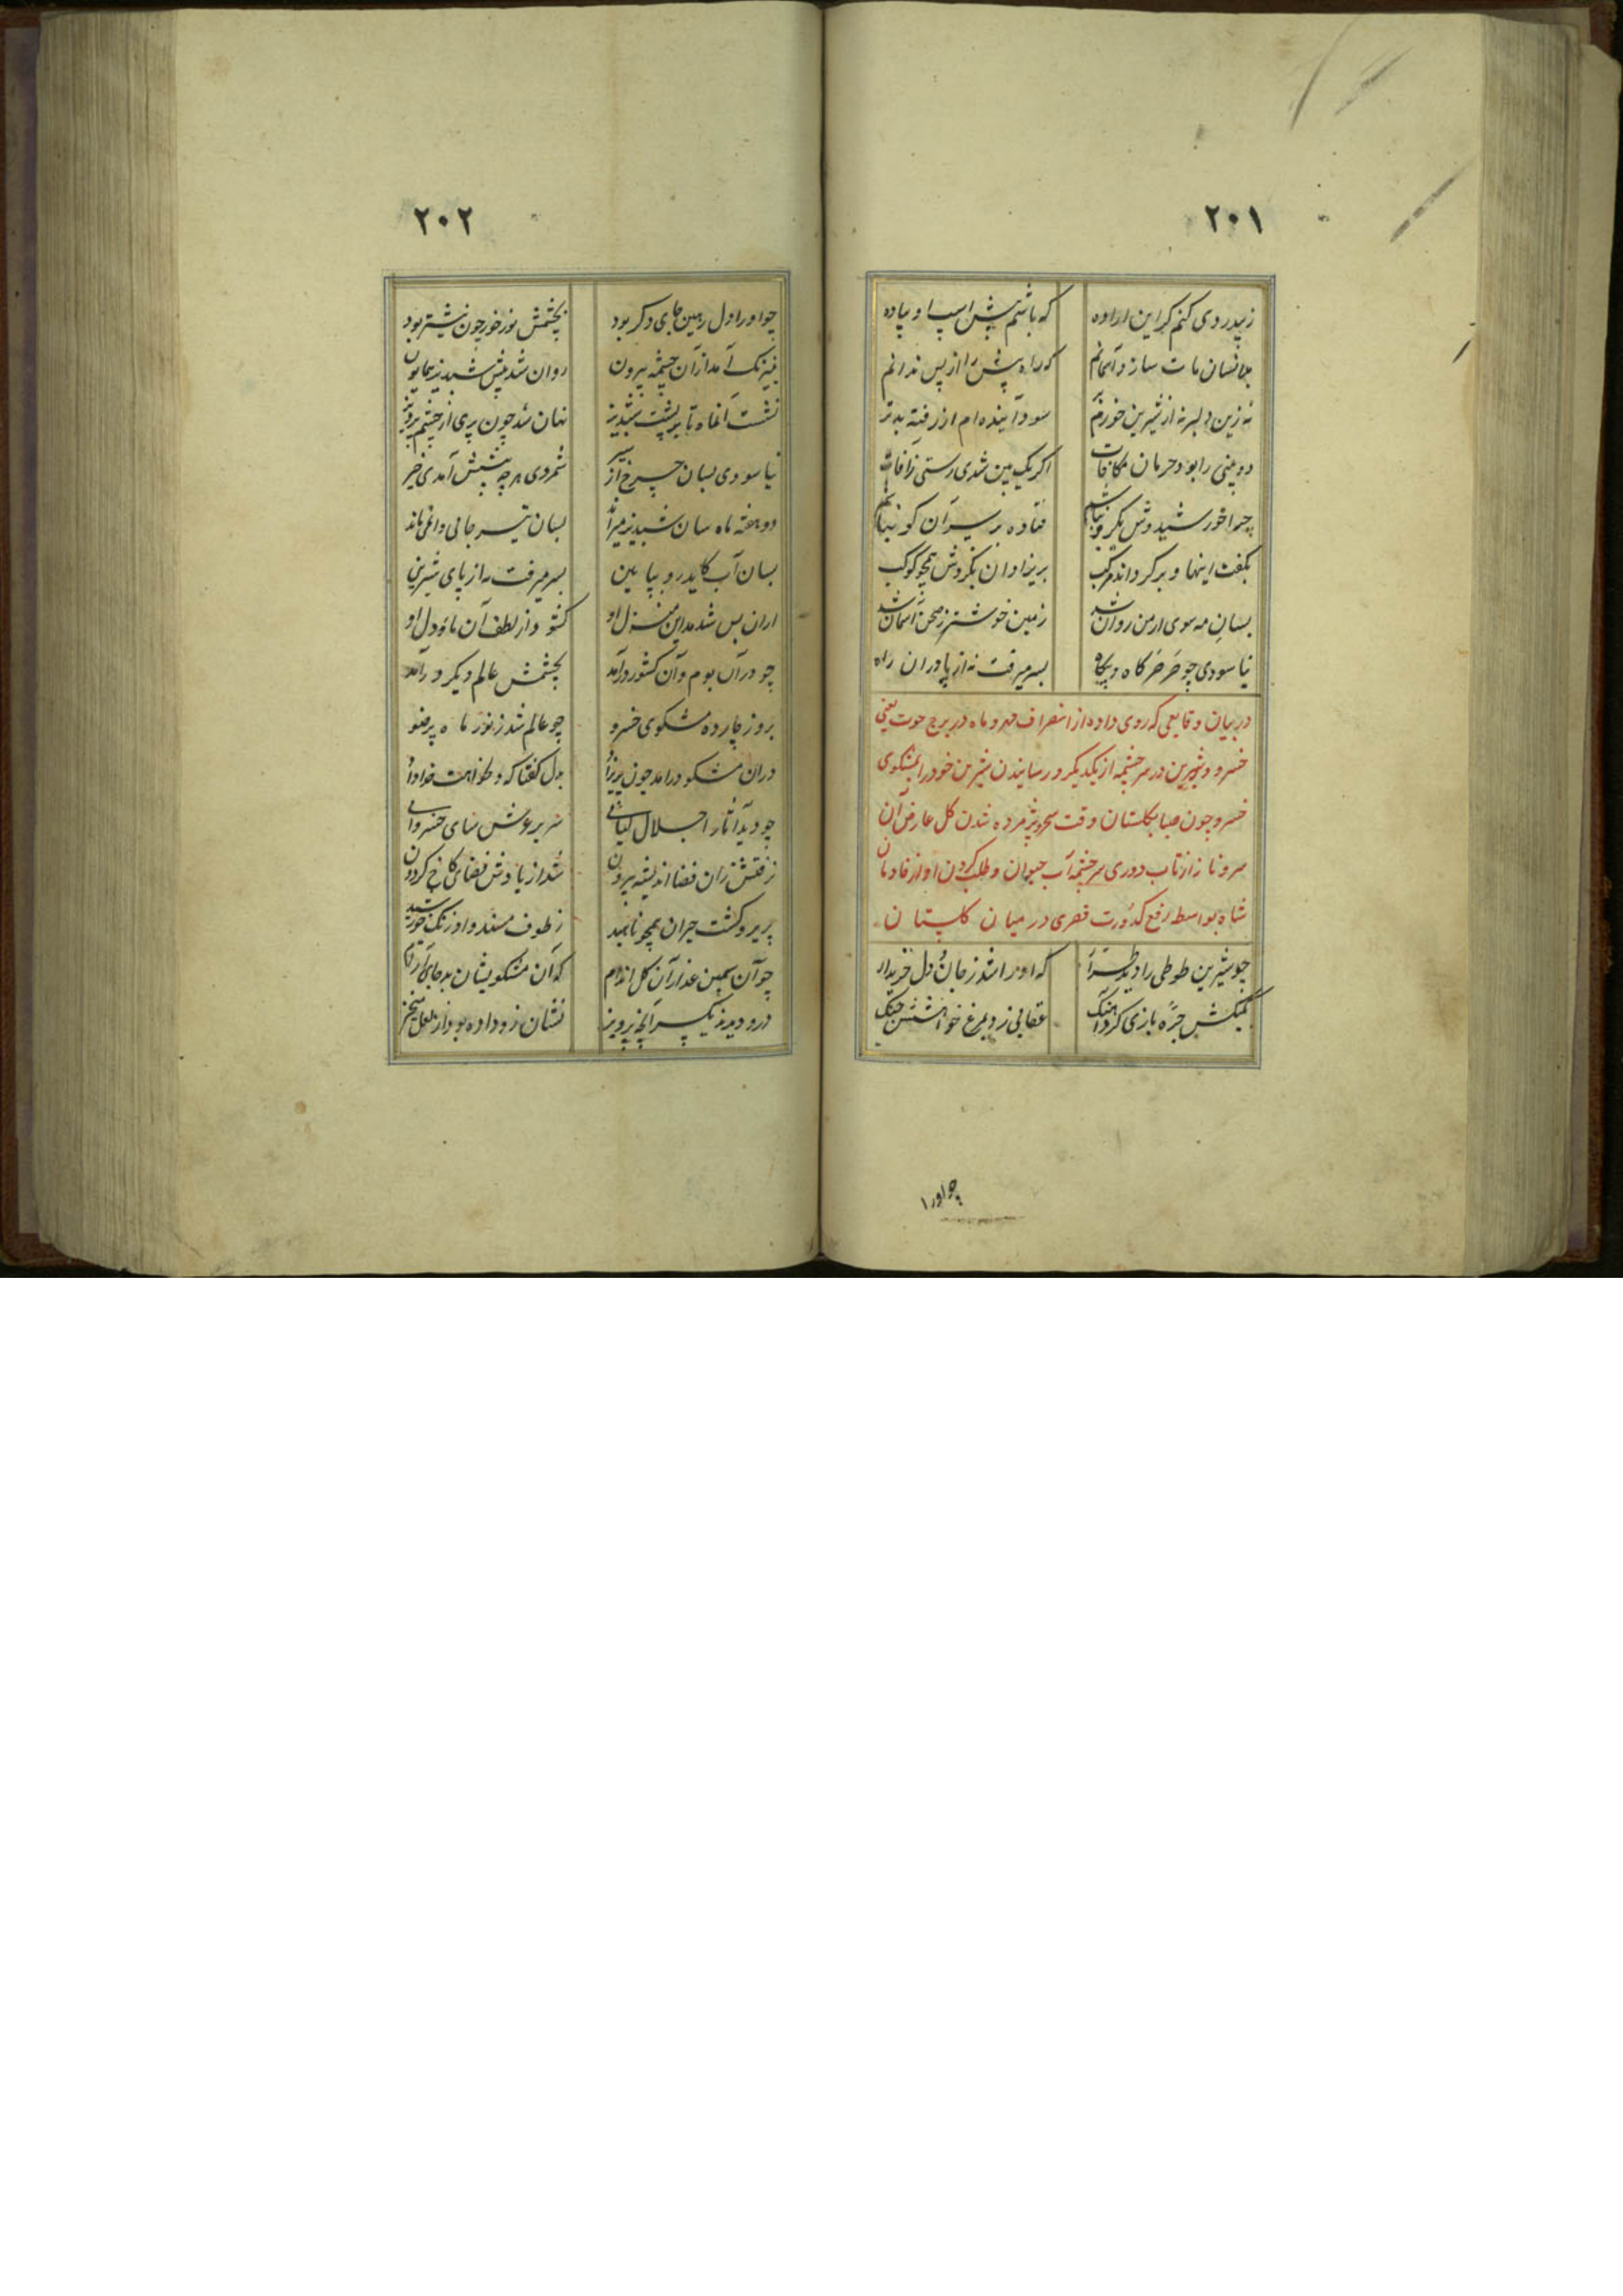 ٢٠١
ز بیدردی کنم کر این اراده که باشم پیش اسپ او پیاده
بدانسان مات سازد آسمانم که راه پیش را از پس ندانم
نه زین دلبر نه از شیرین خورم بر سود آینده‌ام از رفته بدتر
دو بینی را بود حرمان مکافات اکر یک بین شدی رستی ز آفات
چرا خورشید وش یکرو نباشم فتاده بر سر آن کو نباشم
بکفت اینها و برکرداند مرکب بریزاو ان بکردش همچو کوکب
بسان مه سوی ارمن روان شد زمین خوشتر ز صحن آسمان شد
نیاسودی چو خور خرکاه و بیکاه بسر میرفت نه از پا در ان راه
در بیان وقایعی که روی داده از انصراف مهر و ماه در برج حوت یعنی
خسرو و شیرین در سر چشمه از یکدیکر و رسانیدن شیرین خود را بمشکوی
خسرو چون صبا بکلستان وقت سحر و پژمرده شدن کل عارض آن
سرو ناز از تاب دوری سر چشمه آب حیوان و طلب کردن او از خادمان
شاه بواسطه رفع کدورت قصری در میان کلستان
چو شیرین طوطی را دید طرار که او را شد ز جان و دل خریدار
بکبکش جره بازی کرد آهنک عقابی زد بمرغ خواهشش چنک
چو او را
٢٠٢
چو او را دل رهین جای دکر بود بچشمش نور خور چون نیشتر بود
بنیرنک آمد از آن چشمه بیرون روان شد پیش شبدیز همایون
نشست آنماه تا بر پشت شبدیز نهان شد چون پری از چشم پرویز
نیاسودی بسان چرخ از سیر شمردی هر چه پیش آمدی خیر
دو هفته ماه سان شبدیز میراند بسان تیر جائی وا نمی‌ماند
بسان آب کاید رو بپایین بسر میرفت نه از پای شیرین
از ان پس شد مداین منزل او کشود از لطف آن ماوا دل او
چو در آن بوم و آن کشور درآمد بچشمش عالم دیکر درآمد
بروز چارده مشکوی خسرو چو عالم شد ز نور ماه پرضو
در ان مشکو درامد چون پریزاد بدل کفتا که دلخواهت خدا داد
چو دید آثار اجلال کیانی سریر عرش سای خسروانی
ز رفتش زان فضا اندیشه بیرون شد از یادش فضای کاخ کردون
پریرو کشت حیران همچو ناهید ز طوف مسند و اورنک خورشید
چو آن سیمین عذار آن کل اندام که آن مشکویشان بد جای آرام
درو دیدند یکسر آنچه پرویز نشان زو داده بود از لعل